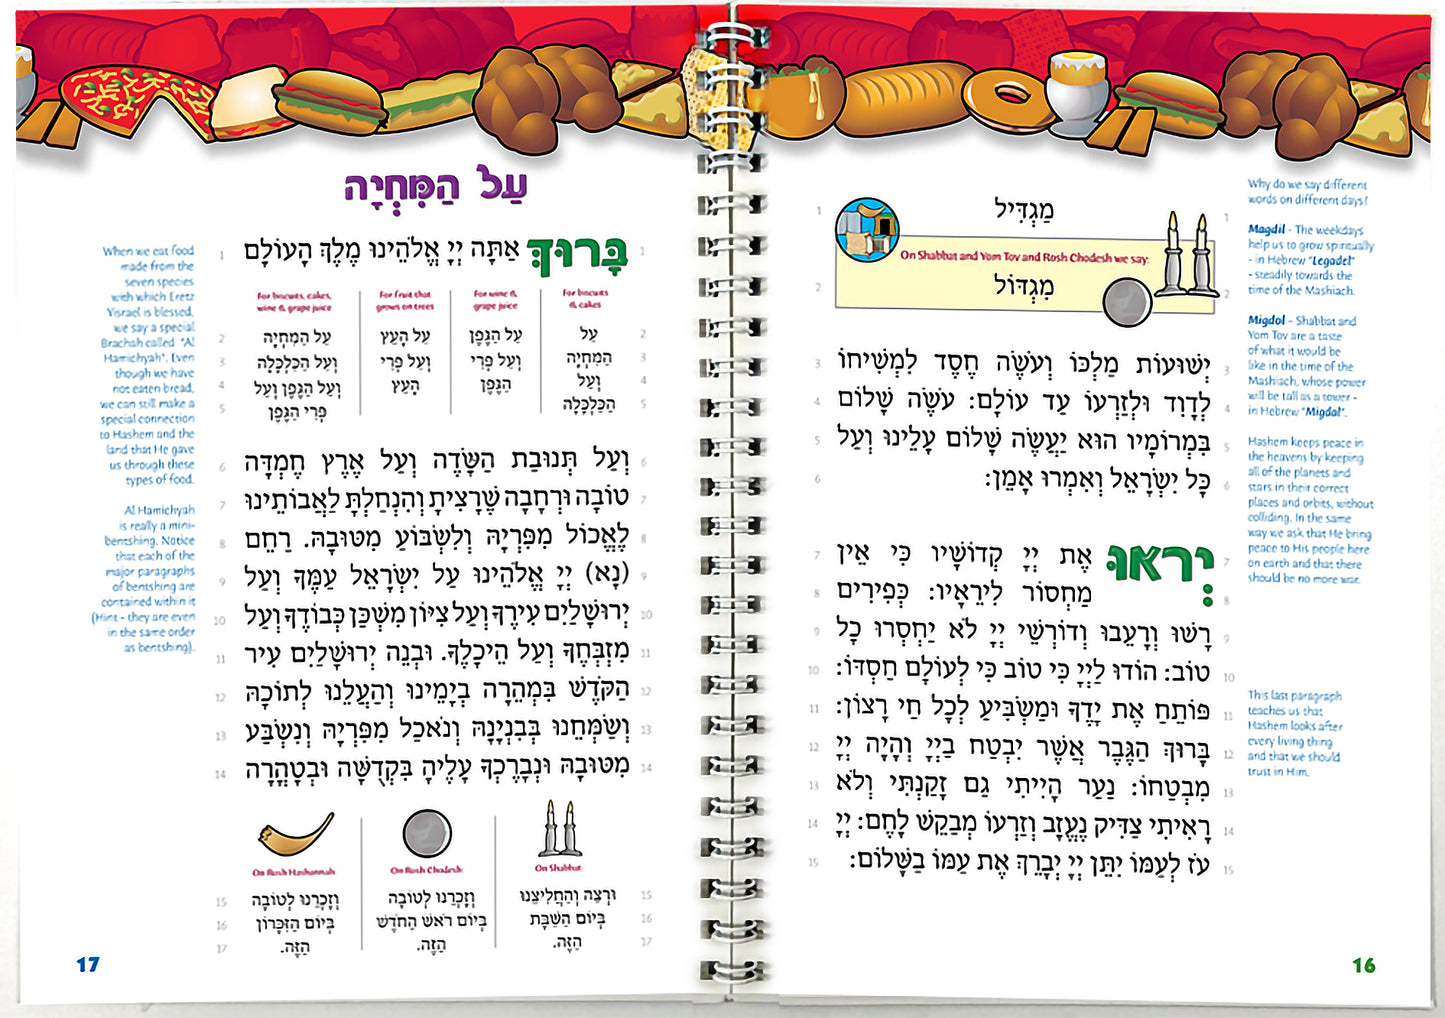 מַגְדִּיל
On Shabbat and Yom Tov and Rosh Chodesh we say:
מִגְדּוֹל
יְשׁוּעוֹת מַלְכּוֹ וְעֹשֶׂה חֶסֶד לִמְשִׁיחוֹ
לְדָוִד וּלְזַרְעוֹ עַד עוֹלָם: עֹשֶׂה שָׁלוֹם
בִּמְרוֹמָיו הוּא יַעֲשֶׂה שָׁלוֹם עָלֵינוּ וְעַל
כָּל יִשְׂרָאֵל וְאִמְרוּ אָמֵן:
יְראוּ אֶת יְיָ קְדוֹשָׁיו כִּי אֵין
מַחְסוֹר לִירֵאָיו: כְּפִירִים
רָשׁוּ וְרָעֵבוּ וְדוֹרְשֵׁי יְיָ לֹא יַחְסְרוּ כָל
טוֹב: הוֹדוּ לַיְיָ כִּי טוֹב כִּי לְעוֹלָם חַסְדּוֹ:
פּוֹתֵחַ אֶת יָדֶךָ וּמַשְׂבִּיעַ לְכָל חַי רָצוֹן:
בָּרוּךְ הַגֶּבֶר אֲשֶׁר יִבְטַח בַּיְיָ וְהָיָה יְיָ
מִבְטַחוֹ: נַעַר הָיִיתִי גַם זָקַנְתִּי וְלֹא
רָאִיתִי צַדִּיק נֶעֱזָב וְזַרְעוֹ מְבַקֵּשׁ לָחֶם: יְיָ
עֹז לְעַמּוֹ יִתֵּן יְיָ יְבָרֵךְ אֶת עַמּוֹ בַשָּׁלוֹם:
1
2
3
4
5
6
7
8
9
10
11
12
13
14
15
1
2
3
4
5
6
7
8
9
10
11
12
13
14
15
Why do we say different
words on different days?
Magdil - The weekdays
help us to grow spiritually
- in Hebrew "Legadel"
- steadily towards the
time of the Mashiach.
Migdol - Shabbat and
Yom Tov are a taste
of what it would be
like in the time of the
Mashiach, whose power
will be tall as a tower -
in Hebrew "Migdal".
Hashem keeps peace in
the heavens by keeping
all of the planets and
stars in their correct
places and orbits, without
colliding. In the same
way we ask that He bring
peace to His people here
on earth and that there
should be no more war.
This last paragraph
teaches us that
Hashem looks after
every living thing
and that we should
trust in Him.
16
עַל הַמִּחְיָה
בָּרוּךְ אַתָּה יְיָ אֱלֹהֵינוּ מֶלֶךְ הָעוֹלָם
For biscuits
& cakes
עַל
הַמִּחְיָה
וְעַל
הַכַּלְכָּלָה
For wine &
grape juice
עַל הַגֶּפֶן
וְעַל פְּרִי
הַגֶּפֶן
For fruit that
grows on trees
עַל הָעֵץ
וְעַל פְּרִי
הָעֵץ
For biscuits, cakes,
wine & grape juice
עַל הַמִּחְיָה
וְעַל הַכַּלְכָּלָה
וְעַל הַגֶּפֶן וְעַל
פְּרִי הַגֶּפֶן
וְעַל תְּנוּבַת הַשָּׂדֶה וְעַל אֶרֶץ חֶמְדָּה
טוֹבָה וּרְחָבָה שֶׁרָצִיתָ וְהִנְחַלְתָּ לַאֲבוֹתֵינוּ
לֶאֱכוֹל מִפִּרְיָהּ וְלִשְׂבּוֹעַ מִטּוּבָהּ. רַחֵם
(נָא) יְיָ אֱלֹהֵינוּ עַל יִשְׂרָאֵל עַמֶּךָ וְעַל
יְרוּשָׁלַיִם עִירֶךָ וְעַל צִיּוֹן מִשְׁכַּן כְּבוֹדֶךָ וְעַל
מִזְבְּחֶךָ וְעַל הֵיכָלֶךָ. וּבְנֵה יְרוּשָׁלַיִם עִיר
הַקֹּדֶשׁ בִּמְהֵרָה בְיָמֵינוּ וְהַעֲלֵנוּ לְתוֹכָהּ
וְשַׂמְּחֵנוּ בְּבִנְיָנָהּ וְנֹאכַל מִפִּרְיָהּ וְנִשְׂבַּע
מִטּוּבָהּ וּנְבָרֶכְךָ עָלֶיהָ בִּקְדֻשָּׁה וּבְטָהֳרָה
On Shabbat:
וּרְצֵה וְהַחֲלִיצֵנוּ
בְּיוֹם הַשַּׁבָּת
הַזֶּה.
On Rosh Chodesh:
וְזָכְרֵנוּ לְטוֹבָה
בְּיוֹם רֹאשׁ הַחֹדֶשׁ
הַזֶּה.
On Rosh Hashannah
וְזָכְרֵנוּ לְטוֹבָה
בְּיוֹם הַזִּכָּרוֹן
הַזֶּה.
1
2
3
4
5
6
7
8
9
10
11
12
13
14
15
16
17
1
2
3
4
5
6
7
8
9
10
11
12
13
14
15
16
17
When we eat food
made from the
seven species
with which Eretz
Yisrael is blessed,
we say a special
Brachah called "Al
Hamichyah". Even
though we have
not eaten bread,
we can still make a
special connection
to Hashem and the
land that He gave
us through these
types of food.
Al Hamichyah
is really a mini-
bentshing. Notice
that each of the
major paragraphs
of bentshing are
contained within it
(Hint - they are even
in the same order
as bentshing).
17